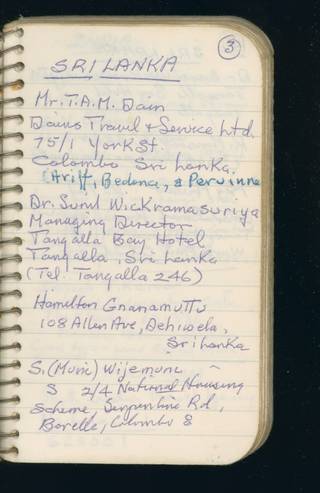 3
SRI LANKA
Mr. T. A. M. Dain
Dains Travel & Service Ltd.
75/1 York St.
Colombo Sri Lanka.
(Ariff, Bedona, & Pervinne
Dr. Sunil Wickramasuriya
Managing Director
Tangalla Bay Hotel
Tangalla, Sri Lanka
(Tel. Tangalla 246)
Hamilton Gnanamuttu
108 Allen Ave, Dehiwela,
Sri Lanka
S. (Muni) Wijemune
S 2/4 National Housing
Scheme, Serpentine Rd,
Borelle, Colombo 8